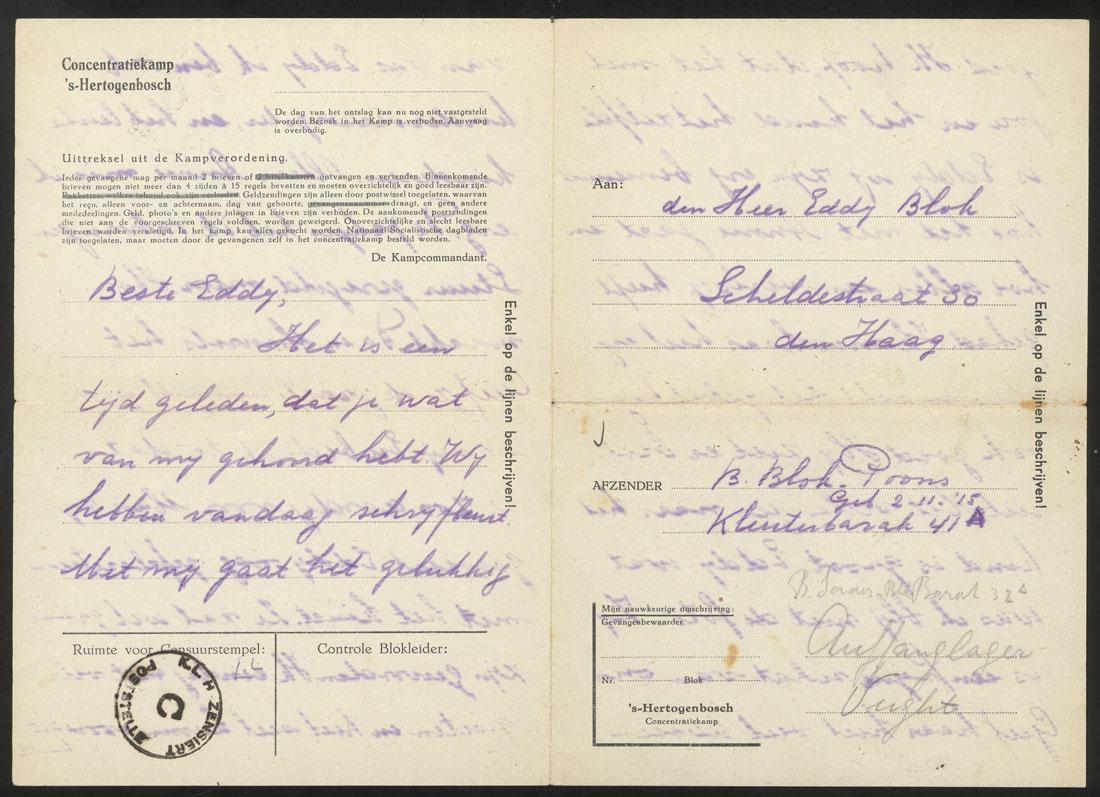 Concentratiekamp
's-Hertogenbosch
De dag van het ontslag kan nu nog niet vastgesteld
worden. Bezoek in het Kamp is verboden. Aanvraag
is overbodig.
Uittreksel uit de Kampverordening.
Ieder gevangene mag per maand 2 brieven of 2 briefkaarten ontvangen en verzenden. Binnenkomende
brieven mogen niet meer dan 4 zijden à 15 regels bevatten en moeten overzichtelijk en goed leesbaar zijn.
Pakketten, welken inhoud ook, zijn verboden. Geldzendingen zijn alleen door postwissel toegelaten, waarvan
het reçu, alleen voor- en achternaam, dag van geboorte, gevangenennummer draagt, en geen andere
mededeelingen. Geld, photo's en andere inlagen in brieven zijn verboden. De aankomende postzendingen
die niet aan de voorgeschreven regels voldoen, worden geweigerd. Onoverzichtelijke, slecht leesbare
brieven worden vernietigd. In het kamp kan alles gekocht worden. Nationaal-Socialistische dagbladen
zijn toegelaten, maar moeten door de gevangenen zelf in het concentratiekamp besteld worden.
De Kampcommandant.
Beste Eddy,
Het is een
tijd geleden, dat je wat
van my gehoord hebt. Wy
hebben vandaag schryfdienst
Met my gaat het gelukkig
Enkel op de lijnen beschrijven!
Ruimte voor Censuurstempel:
Controle Blokleider:
K.L.H ZENSIERT
POSTSTELLE
C
Aan:
den Heer Eddy Blok
Scheldestraat 30
den Haag
Enkel op de lijnen beschrijven!
AFZENDER
B. Blok-Poons
Geb. 2-11-'15
Kleuterbarak 41A
Barak 32A
Mijn nauwkeurige omschrijving:
Gevangenbewaarder
Auffanglager
Nr.
Blok
Vught
's-Hertogenbosch
Concentratiekamp